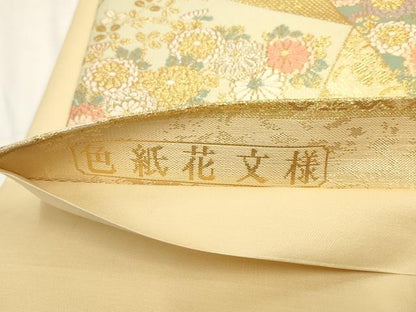 色紙花文様